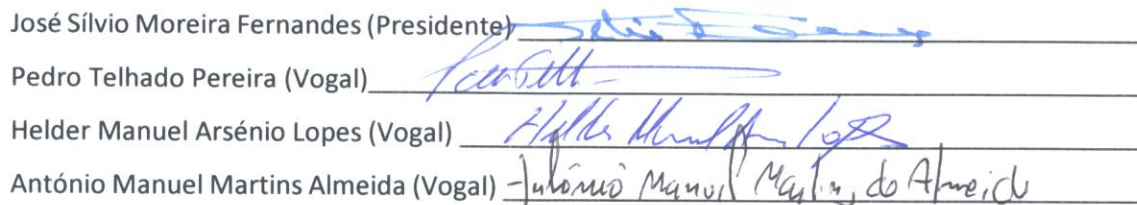 José Sílvio Moreira Fernandes (Presidente)
Pedro Telhado Pereira (Vogal)
Helder Manuel Arsénio Lopes (Vogal) Helder Manuel Lopes
António Manuel Martins Almeida (Vogal) António Manuel Martins de Almeida